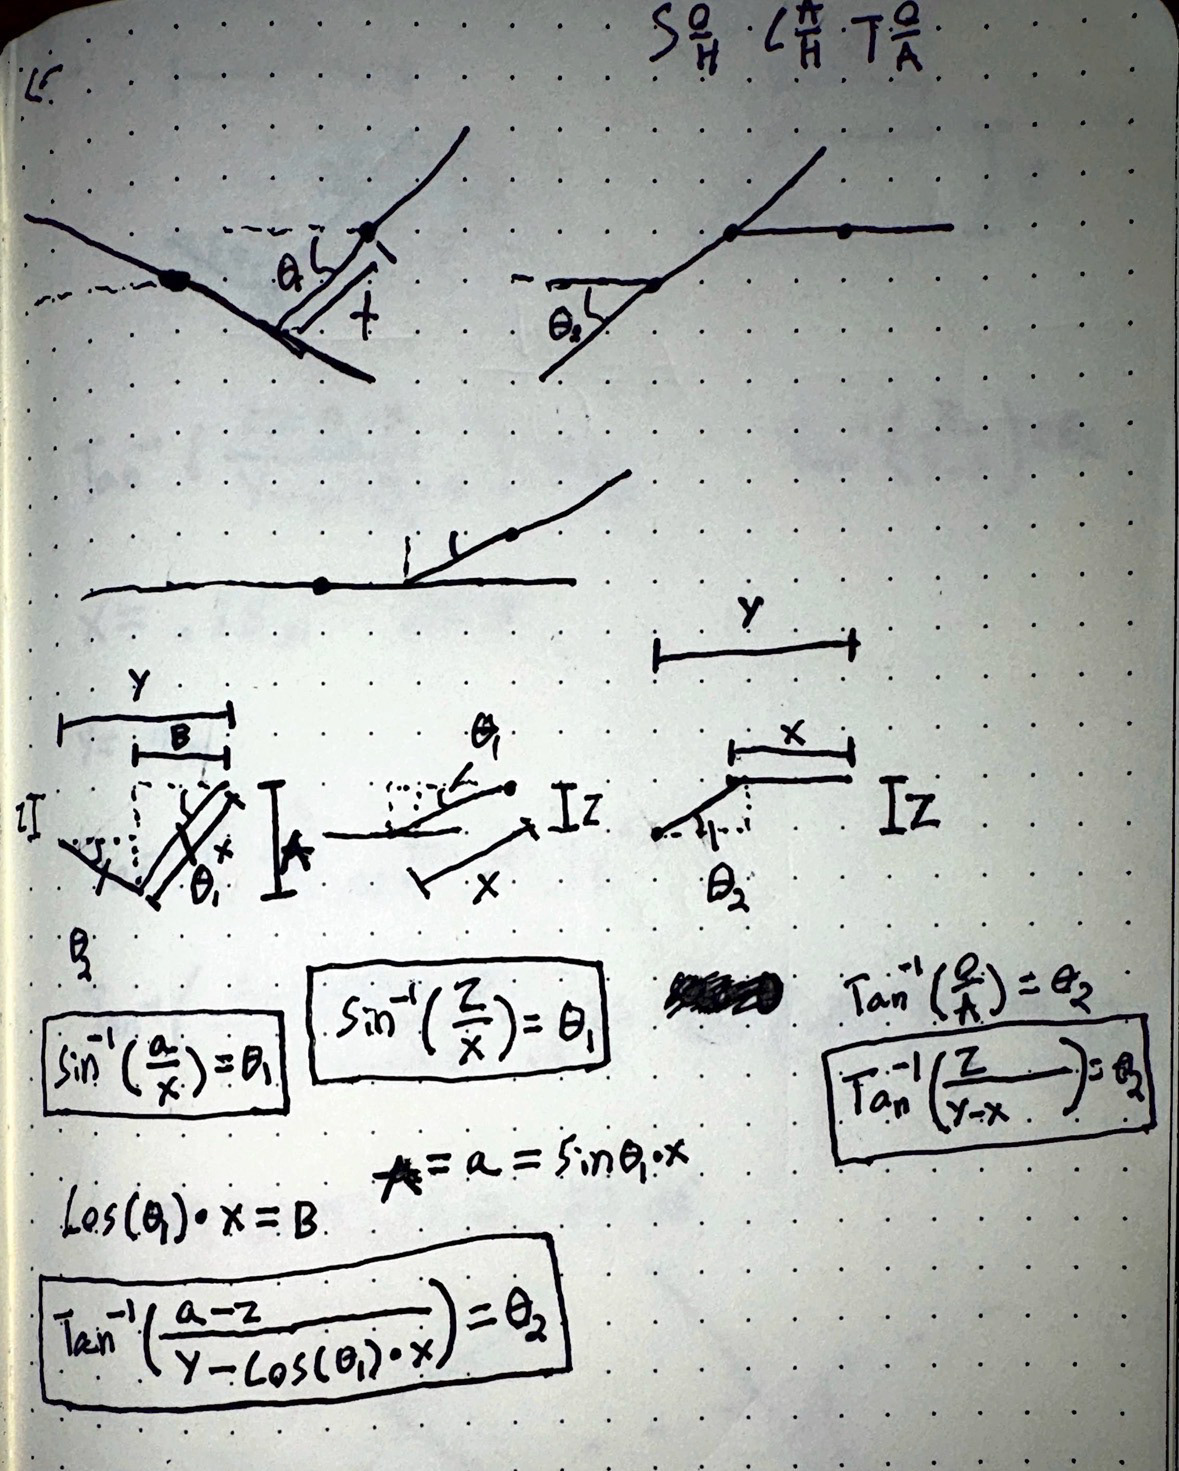 S O/H · C A/H · T O/A
θ₁
X
θ₂
Y
Y
B
θ₁
X
Z
A
Z
Z
X
θ₁
X
θ₂
θ₂
Tan⁻¹(O/A) = θ₂
Sin⁻¹(Z/X) = θ₁
Sin⁻¹(a/x) = θ₁
Tan⁻¹(Z/(Y-X)) = θ₂
A = a = Sinθ₁·x
Cos(θ₁)·x = B
Tan⁻¹((a-z)/(Y-Cos(θ₁)·x)) = θ₂